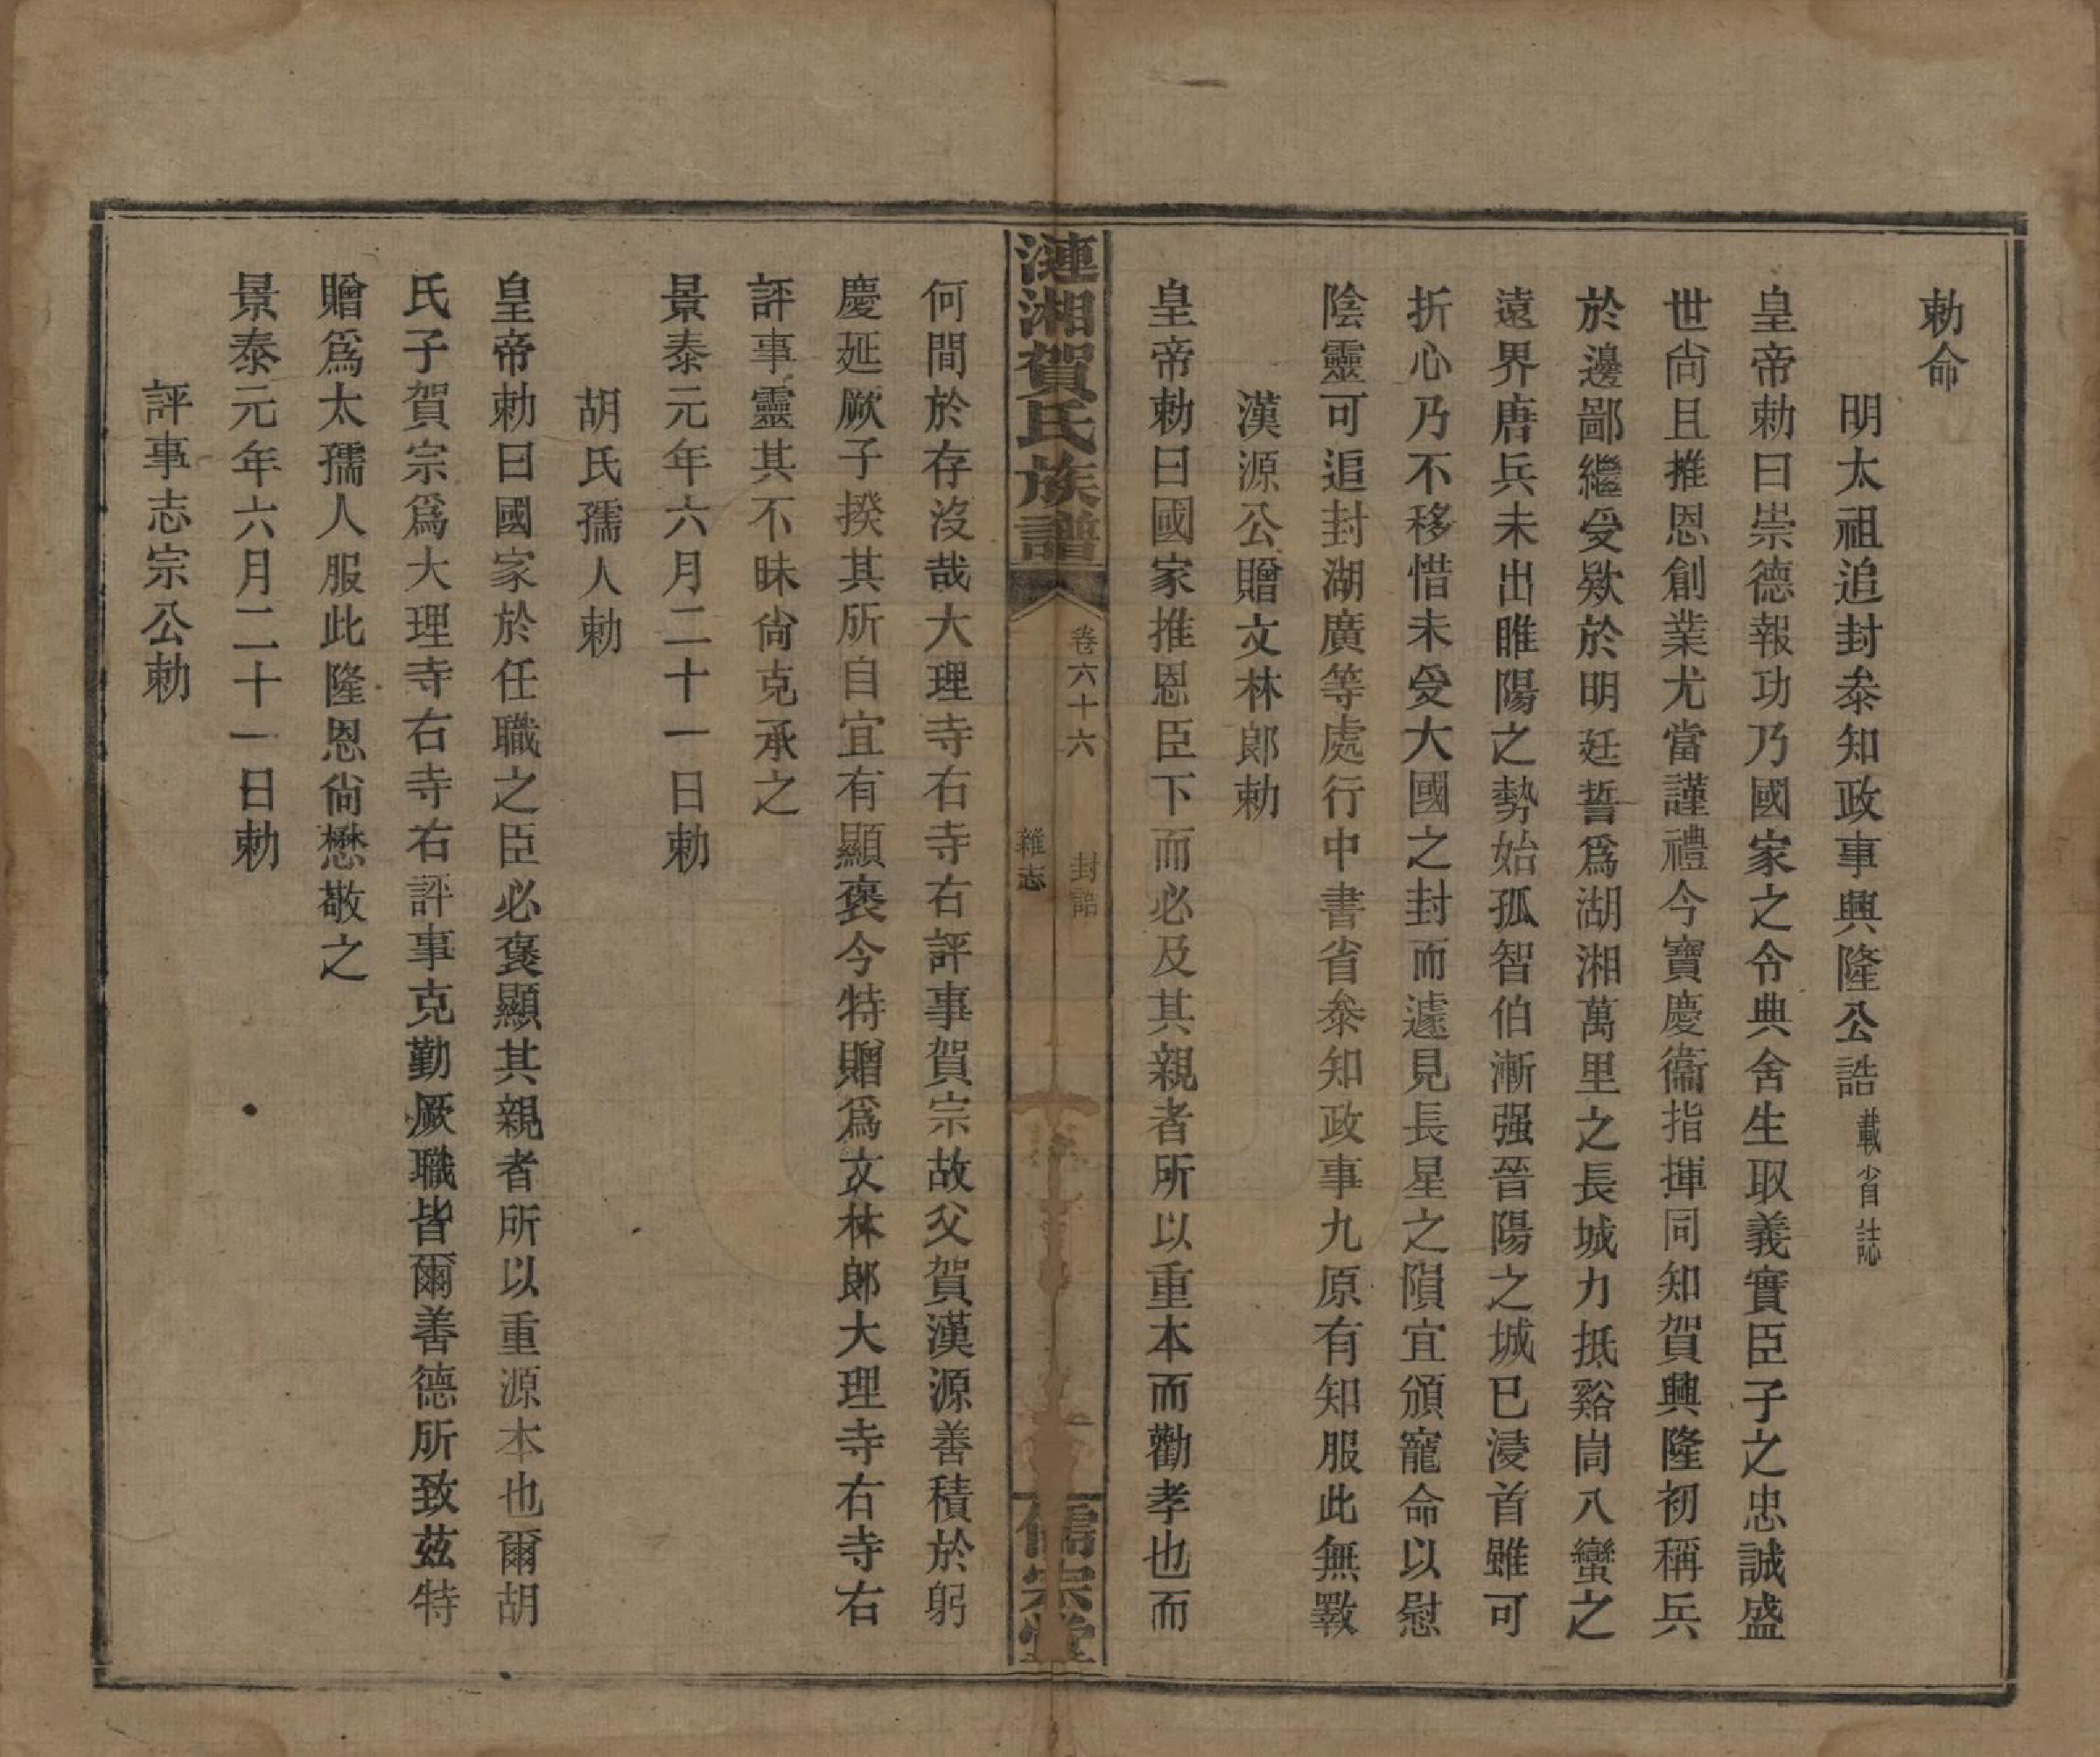 勅命
明太祖追封叅知政事興隆公誥載省誌
皇帝勅曰崇德報功乃國家之令典舍生取義實臣子之忠誠盛
世尙且推恩創業尤當謹禮今寶慶衞指揮同知賀興隆初稱兵
於邊鄙繼受欵於明廷誓爲湖湘萬里之長城力抵谿峝八蠻之
遠界唐兵未出睢陽之勢始孤智伯漸强晉陽之城已浸首雖可
折心乃不移惜未受大國之封而遽見長星之隕宜頒寵命以慰
陰靈可追封湖廣等處行中書省叅知政事九原有知服此無斁
漢源公贈文林郎勅
皇帝勅曰國家推恩臣下而必及其親者所以重本而勸孝也而
漣湘賀氏族譜
卷六十六 封誥
雜志
儒宗堂
何間於存沒哉大理寺右寺右評事賀宗故父賀漢源善積於躬
慶延厥子揆其所自宜有顯褒今特贈爲文林郎大理寺右寺右
評事靈其不昧尙克承之
景泰元年六月二十一日勅
胡氏孺人勅
皇帝勅曰國家於任職之臣必褒顯其親者所以重源本也爾胡
氏子賀宗爲大理寺右寺右評事克勤厥職皆爾善德所致茲特
贈爲太孺人服此隆恩尙懋敬之
景泰元年六月二十一日勅
評事志宗公勅